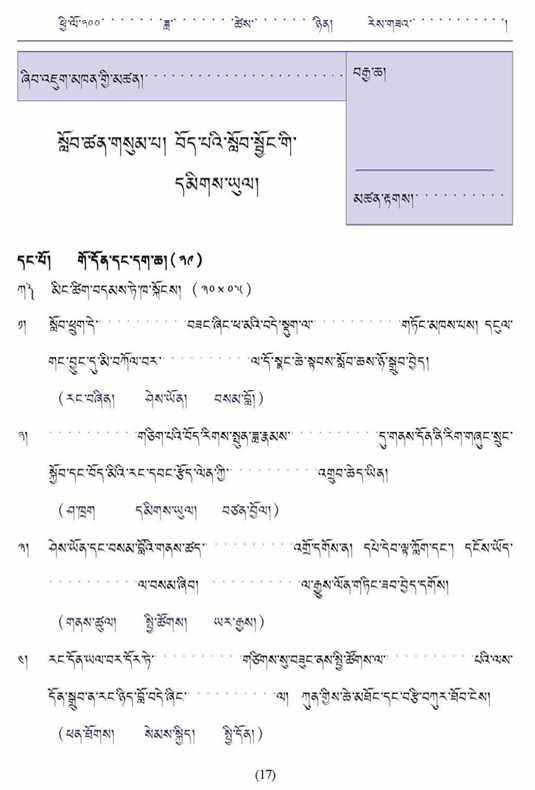 ཕྱི་ལོ་༢༠༠ ཟླ་ ཚེས་ ཉིན། རེས་གཟའ་ །
ཞིབ་འཇུག་མཁན་གྱི་མཚན།
བརྒྱ་ཆ།
སློབ་ཚན་གསུམ་པ། བོད་པའི་སློབ་སྦྱོང་གི་
དམིགས་ཡུལ།
མཚན་རྟགས།
དང་པོ། གོ་དོན་དང་དག་ཆ། (༢༩)
ཀ༽ མིང་ཚིག་བདམས་ཏེ་ཁ་སྐོངས། (༢༠×༠༥)
༡། སློབ་ཕྲུག་དེ་ བཟང་ཞིང་ཕ་མའི་བདེ་སྡུག་ལ་ གཏོང་མཁས་པས། དངུལ་
གང་བྱུང་དུ་མི་བཀོལ་བར་ ལ་དོ་སྣང་ཆེ་སྟབས་སློབ་ཆས་ཉོ་སྒྲུབ་བྱེད།
(རང་བཞིན། ཤེས་ཡོན། བསམ་བློ།)
༢། གཅིག་པའི་བོད་རིགས་སྤུན་ཟླ་རྣམས་ དུ་གནས་དོན་ནི་རིག་གཞུང་སྲུང་
སྐྱོབ་དང་བོད་མིའི་རང་དབང་རྩོད་ལེན་གྱི་ འགྲུབ་ཆེད་ཡིན།
(ཤ་ཁྲག དམིགས་ཡུལ། བཙན་བྱོལ།)
༣། ཤེས་ཡོན་དང་བསམ་བློའི་གནས་ཚད་ འགྲོ་དགོས་ན། དཔེ་དེབ་ལྟ་ཀློག་དང་། དངོས་ཡོད་
ལ་བསམ་ཞིབ། ལ་རྒྱུས་ལོན་གཏིང་ཟབ་བྱེད་དགོས།
(གནས་ཚུལ། སྤྱི་ཚོགས། ཡར་རྒྱས།)
༤། རང་དོན་ཡལ་བར་དོར་ཏེ་ གཙིགས་སུ་བཟུང་ནས་སྤྱི་ཚོགས་ལ་ པའི་ལས་
དོན་སྒྲུབ་ན་རང་ཉིད་བློ་བདེ་ཞིང་ ལ། ཀུན་གྱིས་ཆེ་མཐོང་དང་བརྩི་བཀུར་ཐོབ་ངེས།
(ཕན་ཐོགས། སེམས་སྐྱིད། སྤྱི་དོན།)
(17)